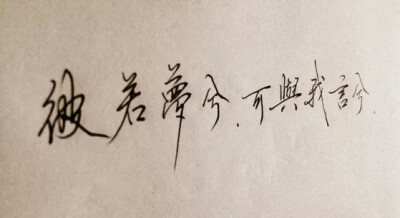 彼若夢兮.可與我言兮.